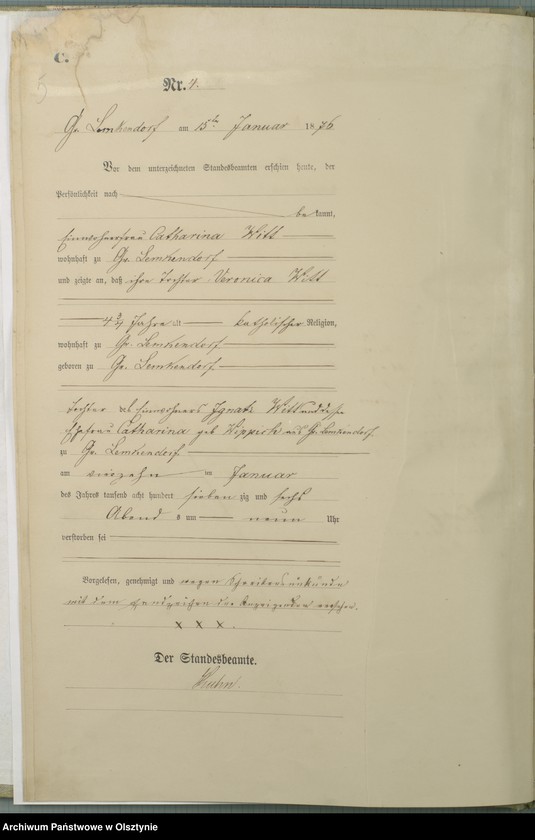 C.
5
Nr. 4.
Gr. Lemkendorf am 15ten Januar 1876
Vor dem unterzeichneten Standesbeamten erschien heute, der
Persönlichkeit nach
bekannt,
Einwohnerfrau Catharina Witt
wohnhaft zu Gr. Lemkendorf
und zeigte an, daß ihre Tochter Veronica Witt
4 3/4 Jahre alt katholischer Religion,
wohnhaft zu Gr. Lemkendorf
geboren zu Gr. Lemkendorf
Tochter des Einwohners Ignatz Witt und dessen
Ehefrau Catharina geb. aus Gr. Lemkendorf
zu Gr. Lemkendorf
am vierzehn ten Januar
des Jahres tausend acht hundert siebenzig und sechs
Abends um neun Uhr
verstorben sei
Vorgelesen, genehmigt und wegen Schreibensunkunde
mit dem Handzeichen der Anzeigenden versehen.
x x x.
Der Standesbeamte.
Archiwum Państwowe w Olsztynie